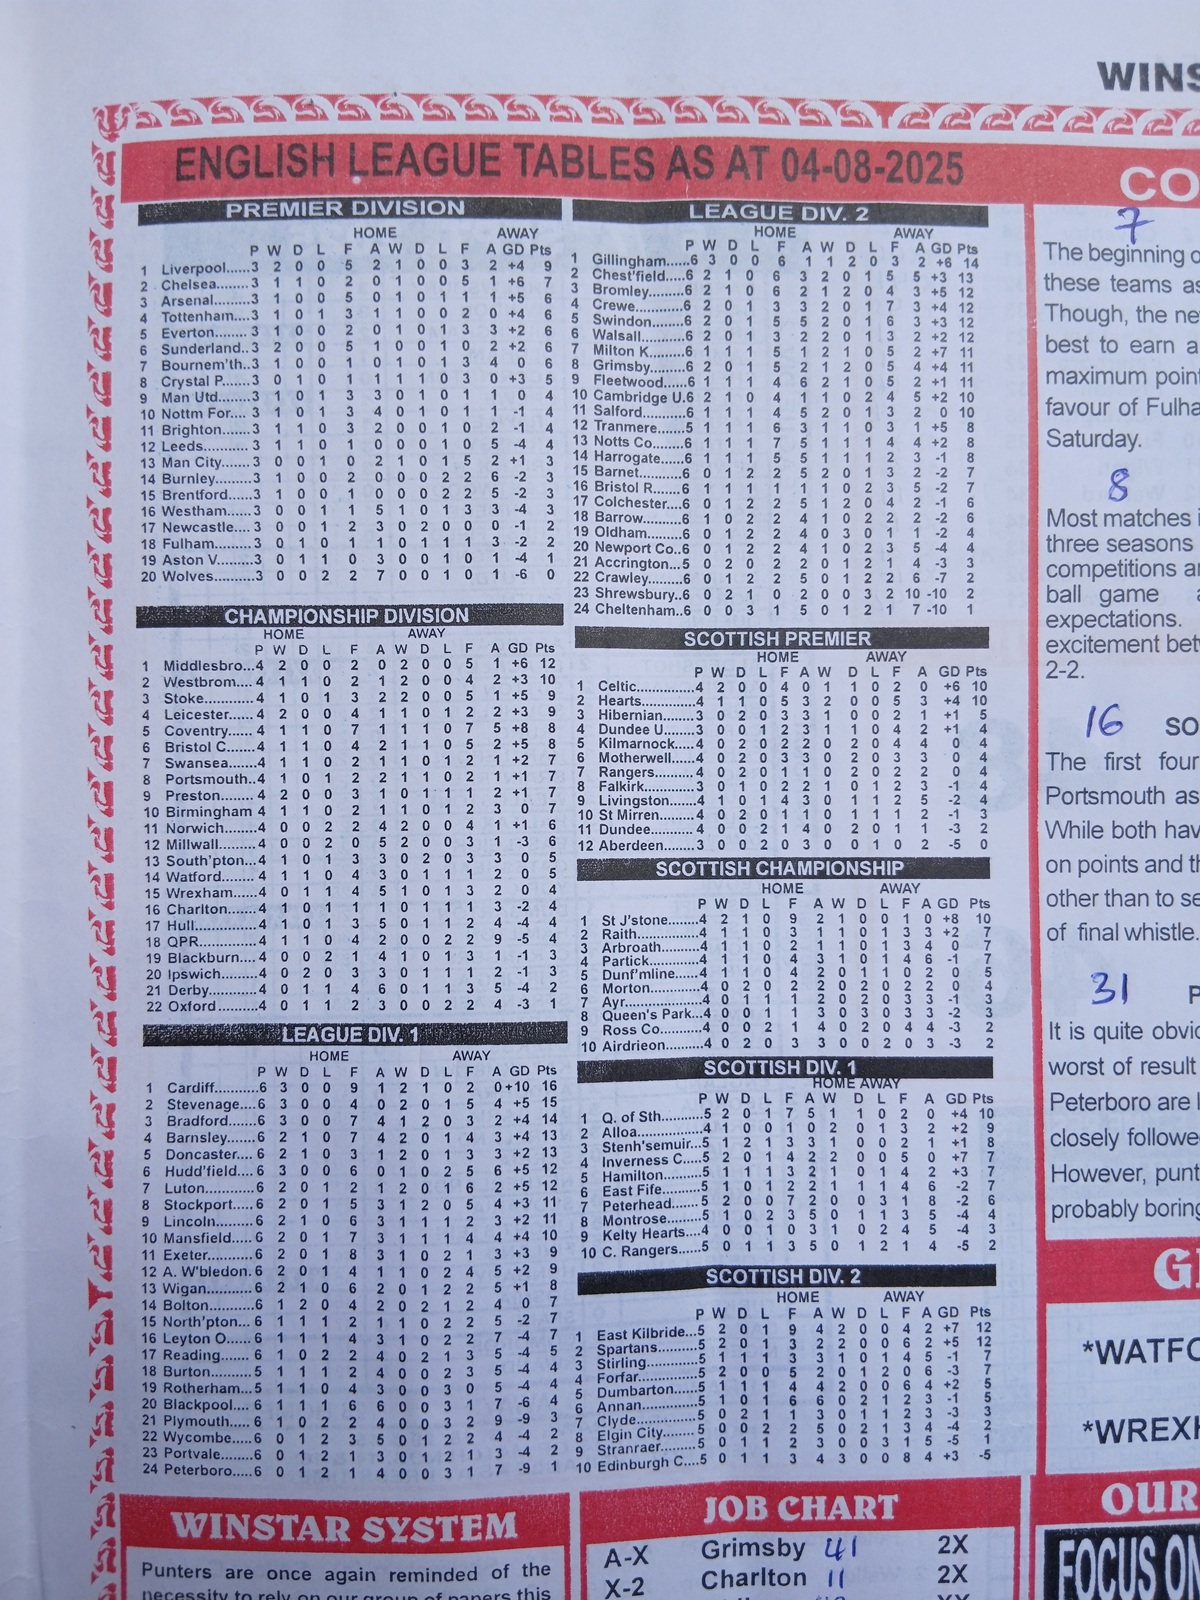 WINS
ENGLISH LEAGUE TABLES AS AT 04-08-2025
PREMIER DIVISION
HOME AWAY
P W D L F A W D L F A GD Pts
1 Liverpool......3 2 0 0 5 2 1 0 0 3 2 +4 9
2 Chelsea........3 1 1 0 2 0 1 0 0 5 1 +6 7
3 Arsenal........3 1 0 0 5 0 1 0 1 1 1 +5 6
4 Tottenham....3 1 0 1 3 1 1 0 0 2 0 +4 6
5 Everton........3 1 0 0 2 0 1 0 1 3 3 +2 6
6 Sunderland..3 2 0 0 5 1 0 0 1 0 2 +2 6
7 Bournem'th..3 1 0 0 1 0 1 0 1 3 4 0 6
8 Crystal P......3 0 1 0 1 1 1 1 0 3 0 +3 5
9 Man Utd.......3 1 0 0 3 3 0 1 0 1 1 0 4
10 Nottm For....3 1 0 1 3 4 0 1 0 1 1 -1 4
11 Brighton.......3 1 1 0 3 2 0 0 1 0 2 -1 4
12 Leeds..........3 1 1 0 1 0 0 0 1 0 5 -4 4
13 Man City......3 0 0 1 0 2 1 0 1 5 2 +1 3
14 Burnley........3 1 0 0 2 0 0 0 2 2 6 -2 3
15 Brentford......3 1 0 0 1 0 0 0 2 2 5 -2 3
16 Westham.....3 0 0 1 1 5 1 0 1 3 3 -4 3
17 Newcastle....3 0 0 1 2 3 0 2 0 0 0 -1 2
18 Fulham........3 0 1 0 1 1 0 1 1 1 3 -2 2
19 Aston V........3 0 1 1 0 3 0 0 1 0 1 -4 1
20 Wolves.........3 0 0 2 2 7 0 0 1 0 1 -6 0
CHAMPIONSHIP DIVISION
HOME AWAY
P W D L F A W D L F A GD Pts
1 Middlesbro...4 2 0 0 2 0 2 0 0 5 1 +6 12
2 Westbrom....4 1 1 0 2 1 2 0 0 4 2 +3 10
3 Stoke...........4 1 0 1 3 2 2 0 0 5 1 +5 9
4 Leicester......4 2 0 0 4 1 1 0 1 2 2 +3 9
5 Coventry......4 1 1 0 7 1 1 1 0 7 5 +8 8
6 Bristol C.......4 1 1 0 4 2 1 1 0 5 2 +5 8
7 Swansea......4 1 1 0 2 1 1 0 1 2 1 +2 7
8 Portsmouth..4 1 0 1 2 2 1 1 0 2 1 +1 7
9 Preston........4 2 0 0 3 1 0 1 1 1 2 +1 7
10 Birmingham 4 1 1 0 2 1 1 0 1 2 3 0 7
11 Norwich.......4 0 0 2 2 4 2 0 0 4 1 +1 6
12 Millwall........4 0 0 2 0 5 2 0 0 3 1 -3 6
13 South'pton...4 1 0 1 3 3 0 2 0 3 3 0 5
14 Watford.......4 1 1 0 4 3 0 1 1 1 2 0 5
15 Wrexham.....4 0 1 1 4 5 1 0 1 3 2 0 4
16 Charlton......4 1 0 1 1 1 0 1 1 1 3 -2 4
17 Hull.............4 1 0 1 3 5 0 1 1 2 4 -4 4
18 QPR............4 1 1 0 4 2 0 0 2 2 9 -5 4
19 Blackburn....4 0 0 2 1 4 1 0 1 3 1 -1 3
20 Ipswich.......4 0 2 0 3 3 0 1 1 1 2 -1 3
21 Derby..........4 0 1 1 4 6 0 1 1 3 5 -4 2
22 Oxford.........4 0 1 1 2 3 0 0 2 2 4 -3 1
LEAGUE DIV. 1
HOME AWAY
P W D L F A W D L F A GD Pts
1 Cardiff...........6 3 0 0 9 1 2 1 0 2 0 +10 16
2 Stevenage....6 3 0 0 4 0 2 0 1 5 4 +5 15
3 Bradford.......6 3 0 0 7 4 1 2 0 3 2 +4 14
4 Barnsley.......6 2 1 0 7 4 2 0 1 4 3 +4 13
5 Doncaster....6 2 1 0 3 1 2 0 1 3 3 +2 13
6 Hudd'field....6 3 0 0 6 0 1 0 2 5 6 +5 12
7 Luton...........6 2 0 1 2 1 2 0 1 6 2 +5 12
8 Stockport.....6 2 0 1 5 3 1 2 0 5 4 +3 11
9 Lincoln.........6 2 1 0 6 3 1 1 1 2 3 +2 11
10 Mansfield.....6 2 0 1 7 3 1 1 1 4 4 +4 10
11 Exeter..........6 2 0 1 8 3 1 0 2 1 3 +3 9
12 A. W'bledon.6 2 0 1 4 1 1 0 2 4 5 +2 9
13 Wigan..........6 2 1 0 6 2 0 1 2 2 5 +1 8
14 Bolton..........6 1 2 0 4 2 0 2 1 2 4 0 7
15 North'pton...6 1 1 1 2 1 1 0 2 2 5 -2 7
16 Leyton O......6 1 1 1 4 3 1 0 2 2 7 -4 7
17 Reading.......6 1 0 2 2 4 0 2 1 3 5 -4 5
18 Burton.........5 1 1 1 2 4 0 0 2 3 5 -4 4
19 Rotherham...5 1 1 0 4 3 0 0 3 0 5 -4 4
20 Blackpool....6 1 1 1 6 6 0 0 3 1 7 -6 4
21 Plymouth.....6 1 0 2 2 4 0 0 3 2 9 -9 3
22 Wycombe....6 0 1 2 3 5 0 1 2 2 4 -4 2
23 Portvale.......6 0 1 2 1 3 0 1 2 1 3 -4 2
24 Peterboro.....6 0 1 2 1 4 0 0 3 1 7 -9 1
LEAGUE DIV. 2
HOME AWAY
P W D L F A W D L F A GD Pts
1 Gillingham....6 3 0 0 6 1 1 2 0 3 2 +6 14
2 Chest'field....6 2 1 0 6 3 2 0 1 5 5 +3 13
3 Bromley........6 2 1 0 6 2 1 2 0 4 3 +5 12
4 Crewe..........6 2 0 1 3 3 2 0 1 7 3 +4 12
5 Swindon.......6 2 0 1 5 5 2 0 1 6 3 +3 12
6 Walsall.........6 2 0 1 3 2 2 0 1 3 2 +2 12
7 Milton K........6 1 1 1 5 1 2 1 0 5 2 +7 11
8 Grimsby.......6 2 0 1 5 2 1 2 0 4 4 +4 11
9 Fleetwood....6 1 1 1 4 6 2 1 0 5 2 +1 11
10 Cambridge U.6 2 1 0 4 1 1 0 2 4 5 +2 10
11 Salford.........6 1 1 1 4 5 2 0 1 3 2 0 10
12 Tranmere......5 1 1 1 6 3 1 1 0 3 1 +5 8
13 Notts Co.......6 1 1 1 7 5 1 1 1 4 4 +2 8
14 Harrogate.....6 1 1 1 5 5 1 1 1 2 3 -1 8
15 Barnet..........6 0 1 2 2 5 2 0 1 3 2 -2 7
16 Bristol R.......6 1 1 1 1 1 1 0 2 3 5 -2 7
17 Colchester....6 0 1 2 2 5 1 2 0 4 2 -1 6
18 Barrow.........6 1 0 2 2 4 1 0 2 2 2 -2 6
19 Oldham........6 0 1 2 2 4 0 3 0 1 1 -2 4
20 Newport Co..6 0 1 2 2 4 1 0 2 3 5 -4 4
21 Accrington....5 0 2 0 2 2 0 1 2 1 4 -3 3
22 Crawley........6 0 1 2 2 5 0 1 2 2 6 -7 2
23 Shrewsbury..6 0 2 1 0 2 0 0 3 2 10 -10 2
24 Cheltenham..6 0 0 3 1 5 0 1 2 1 7 -10 1
SCOTTISH PREMIER
HOME AWAY
P W D L F A W D L F A GD Pts
1 Celtic..............4 2 0 0 4 0 1 1 0 2 0 +6 10
2 Hearts............4 1 1 0 5 3 2 0 0 5 3 +4 10
3 Hibernian.......3 0 2 0 3 3 1 0 0 2 1 +1 5
4 Dundee U.......3 0 1 0 3 3 1 0 1 4 2 +1 4
5 Kilmarnock.....4 0 2 0 2 2 0 2 0 4 4 0 4
6 Motherwell.....4 0 2 0 3 3 0 2 0 2 2 0 4
7 Rangers.........4 0 2 0 1 1 0 2 0 2 2 0 4
8 Falkirk............3 0 1 0 2 2 1 0 1 2 3 -1 4
9 Livingston......4 1 0 1 4 3 0 1 1 2 5 -2 4
10 St Mirren........4 0 2 0 1 1 0 1 1 1 2 -1 3
11 Dundee..........4 0 0 2 1 4 0 2 0 1 1 -3 2
12 Aberdeen.......3 0 0 2 0 3 0 0 1 0 2 -5 0
SCOTTISH CHAMPIONSHIP
HOME AWAY
P W D L F A W D L F A GD Pts
1 St J'stone.......4 2 1 0 9 2 1 0 0 1 0 +8 10
2 Raith..............4 1 1 0 3 1 1 0 1 3 3 +2 7
3 Arbroath.........4 1 1 0 2 1 1 0 1 3 4 0 7
4 Partick...........4 1 1 0 4 3 1 0 1 4 6 -1 7
5 Dunf'mline......4 1 1 0 4 2 0 1 1 0 2 0 5
6 Morton...........4 0 2 0 2 2 0 2 0 2 2 0 4
7 Ayr.................4 0 1 1 1 2 0 2 0 3 3 -1 3
8 Queen's Park...4 0 0 1 1 3 0 3 0 3 3 -2 3
9 Ross Co.........4 0 0 2 1 4 0 2 0 4 4 -3 2
10 Airdrieon........4 0 2 0 3 3 0 0 2 0 3 -3 2
SCOTTISH DIV. 1
HOME AWAY
P W D L F A W D L F A GD Pts
1 Q. of Sth..........5 2 0 1 7 5 1 1 0 2 0 +4 10
2 Alloa...............4 1 0 0 1 0 2 0 1 3 2 +2 9
3 Stenh'semuir...5 1 2 1 3 3 1 0 0 2 1 +1 8
4 Inverness C....5 2 0 1 4 2 2 0 0 5 0 +7 7
5 Hamilton.........5 1 1 1 3 2 1 0 1 4 2 +3 7
6 East Fife.........5 1 0 1 2 2 1 1 1 4 6 -2 7
7 Peterhead.......5 2 0 0 7 2 0 0 3 1 8 -2 6
8 Montrose........5 1 0 2 3 5 0 1 1 3 5 -4 4
9 Kelty Hearts....4 0 0 1 0 3 1 0 2 4 5 -4 3
10 C. Rangers......5 0 1 1 3 5 0 1 2 1 4 -5 2
SCOTTISH DIV. 2
HOME AWAY
P W D L F A W D L F A GD Pts
1 East Kilbride...5 2 0 1 9 4 2 0 0 4 2 +7 12
2 Spartans.........5 2 0 1 3 2 2 0 0 6 2 +5 12
3 Stirling............5 1 1 1 3 3 1 0 1 4 5 -1 7
4 Forfar
5 Dumbarton
6 Annan
7 Clyde
8 Elgin City
9 Stranraer
10 Edinburgh C....5 0 1 1 3 4 3 0 0 8 4 +3 -5
WINSTAR SYSTEM
Punters are once again reminded of the
necessity to rely on our group of papers this
JOB CHART
A-X Grimsby 41 2X
X-2 Charlton 11 2X
CO
7
The beginning o
these teams as
Though, the ne
best to earn a
maximum point
favour of Fulha
Saturday.
8
Most matches i
three seasons
competitions ar
ball game a
expectations.
excitement betw
2-2.
16 SO
The first four
Portsmouth as
While both hav
on points and th
other than to se
of final whistle.
31 P
It is quite obvio
worst of result
Peterboro are l
closely followe
However, punt
probably boring
*WATFO
*WREXH
OUR
FOCUS ON